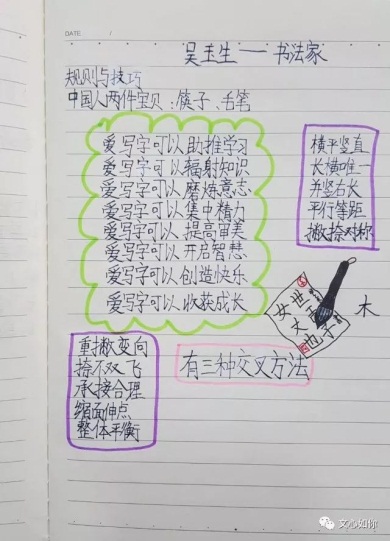 DATE
吴玉生——书法家
规则与技巧
中国人两件宝贝:筷子、毛笔
爱写字可以助推学习
爱写字可以辐射知识
爱写字可以磨炼意志
爱写字可以集中精力
爱写字可以提高审美
爱写字可以开启智慧
爱写字可以创造快乐
爱写字可以收获成长
横平竖直
长横唯一
并竖右长
平行等距
撇捺对称
女世
文
也子
木
有三种交叉方法
重撇变向
捺不双飞
承接合理
缩面伸点
整体平衡
文心如你